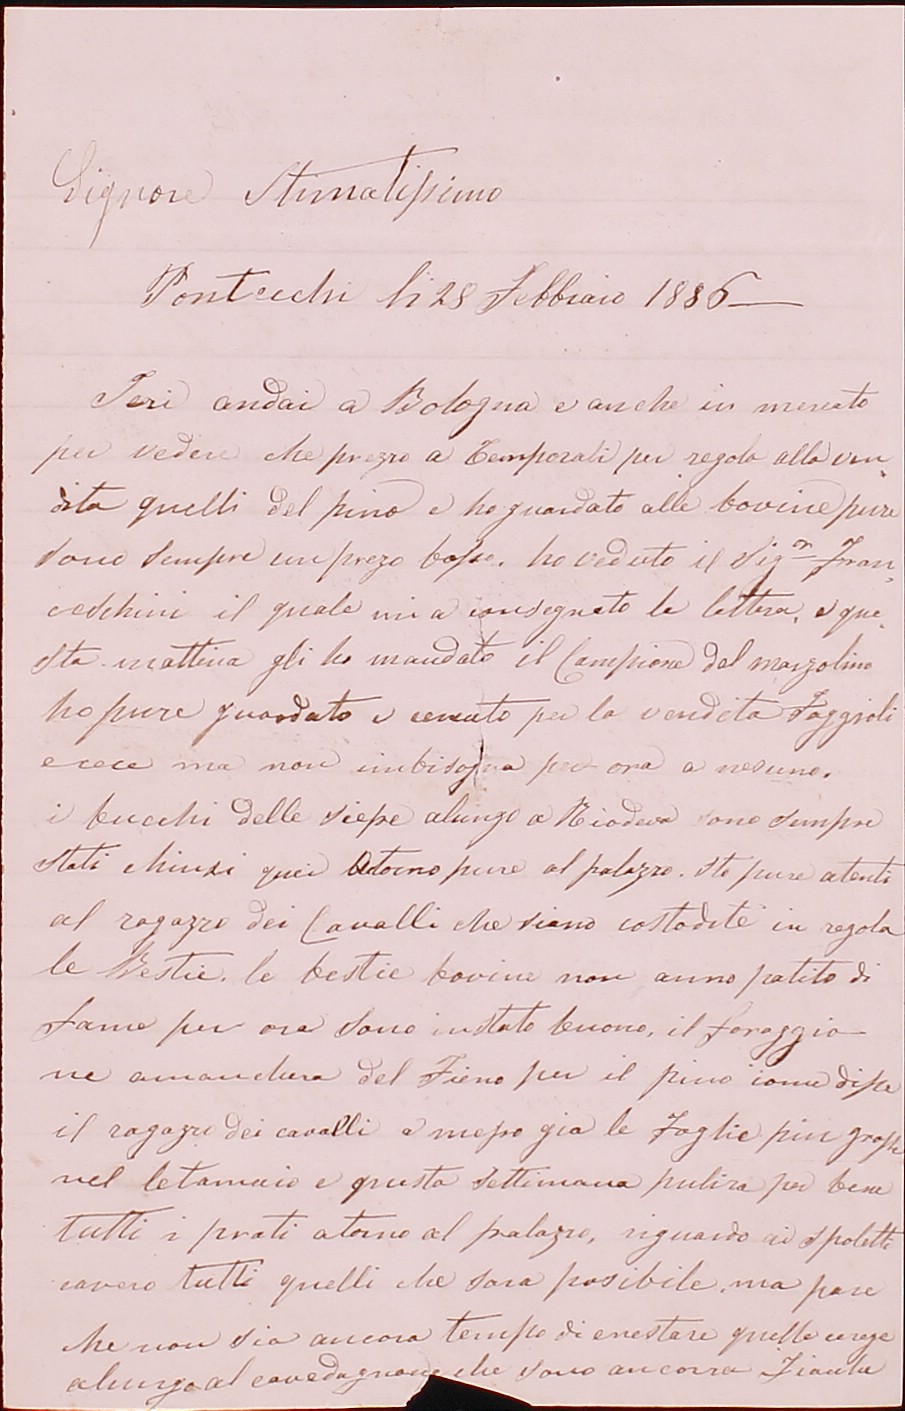 Signore Stimatissimo
Pontecchi li 28 Febbraio 1886
Ieri andai a Bologna e anche in mercato
per vedere che prezzo a Temporali per regola alla ven-
dita quelli del pino e ho guardato alle bovine pure
sono sempre un prezo basso. ho veduto il Sigr Fran-
ceschini il quale mi a consegnato la lettera, e que-
sta mattina gli ho mandato il Campione del marzolino
ho pure guardato e cercato per la vendita Faggioli
e cece ma non imbisogna per ora a nesuno.
i bucchi delle siepe alungo a Riodeva sono sempre
stati chiusi quei atorno pure al palazzo. sto pure atenti
al ragazzo dei Cavalli che siano costodite in regola
le Bestie. le bestie bovine non anno patito di
fame per ora sono in stato buono, il foraggio
ne amanchera del Fieno per il pino come disse
il ragazzo dei cavalli a messo gia le Foglie piu grosse
nel letamaio e questa settimana pulira per bene
tutti i prati atorno al palazzo, riguardo ai spoletti
cavero tutti quelli che sara posibile, ma pare
che non sia ancora tempo di enestare quelle
alungo al cavedagnone che sono ancora